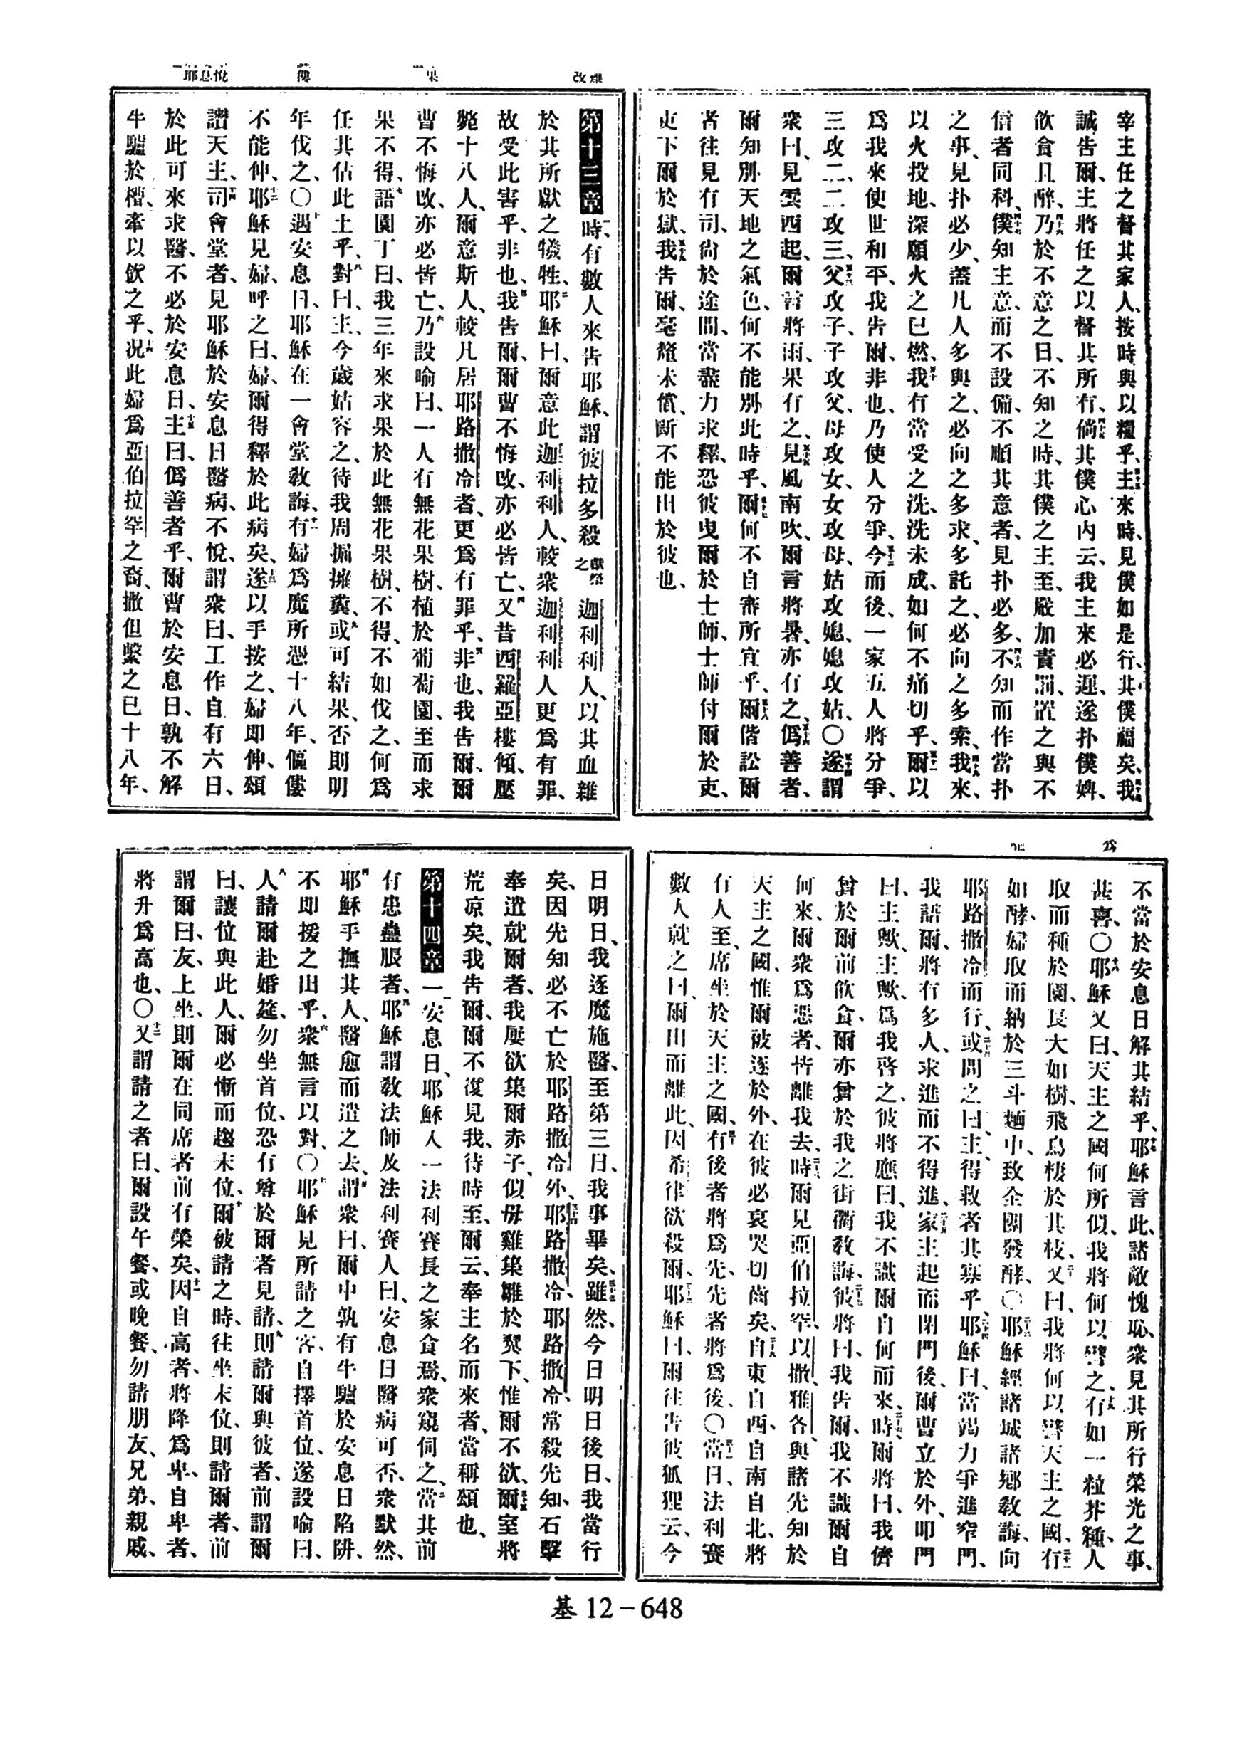 宰主任之督其家人、按時與以糧乎、主來時、見僕如是行、其僕福矣、我
誠告爾、主將任之以督其所有、倘其僕心內云、我主來必遲、遂扑僕婢、
飲食且醉、乃於不意之日、不知之時、其僕之主至、嚴加責罰、置之與不
信者同科、僕知主意、而不設備、不順其意者、見扑必多、不知而作當扑
之事、見扑必少、蓋凡人多與之、必向之多求、多託之、必向之多索、我來、
以火投地、深願火之已燃、我有當受之洗、洗未成、如何不痛切乎、爾以
爲我來使世和平、我告爾、非也、乃使人分爭、今而後、一家五人將分爭、
三攻二、二攻三、父攻子、子攻父、母攻女、女攻母、姑攻媳、媳攻姑、〇遂謂
衆曰、見雲西起、爾言將雨、果有之、見風南吹、爾言將暑、亦有之、僞善者、
爾知別天地之氣色、何不能別此時乎、爾何不自審所宜乎、爾偕訟爾
者往見有司、尙於途間、當盡力求釋、恐彼曳爾於士師、士師付爾於吏、
吏下爾於獄、我告爾、毫釐未償、斷不能出於彼也、
第十三章 時有數人來告耶穌、謂彼拉多殺 獻祭之 迦利利人、以其血雜
於其所獻之犧牲、耶穌曰、爾意此迦利利人、較衆迦利利人更爲有罪、
故受此害乎、非也、我告爾、爾曹不悔改、亦必皆亡、又昔西羅亞樓傾、壓
斃十八人、爾意斯人、較凡居耶路撒冷者、更爲有罪乎、非也、我告爾、爾
曹不悔改、亦必皆亡、乃設喻曰、一人有無花果樹、植於葡萄園、至而求
果不得、語園丁曰、我三年來求果於此無花果樹、不得、不如伐之、何爲
任其佔此土乎、對曰、主、今歲姑容之、待我周掘擁糞、或可結果、否則明
年伐之、〇遇安息日、耶穌在一會堂敎誨、有婦爲魔所憑十八年、傴僂
不能伸、耶穌見婦、呼之曰、婦、爾得釋於此病矣、遂以手按之、婦即伸、頌
讚天主、司會堂者、見耶穌於安息日醫病、不悅、謂衆曰、工作自有六日、
於此可來求醫、不必於安息日、主曰、僞善者乎、爾曹於安息日、孰不解
牛驢於槽、牽以飲之乎、況此婦爲亞伯拉罕之裔、撒但繫之已十八年、
不當於安息日解其結乎、耶穌言此、諸敵愧恥、衆見其所行榮光之事、
甚喜、〇耶穌又曰、天主之國何所似、我將何以譬之、有如一粒芥種、人
取而種於園、長大如樹、飛鳥棲於其枝、又曰、我將何以譬天主之國、有
如酵、婦取而納於三斗麵中、致全團發酵、〇耶穌經諸城諸鄕敎誨、向
耶路撒冷而行、或問之曰、主、得救者其寡乎、耶穌曰、當竭力爭進窄門、
我語爾、將有多人求進而不得進、家主起而閉門後、爾曹立於外、叩門
曰、主歟、主歟、爲我啓之、彼將應曰、我不識爾自何而來、時爾將曰、我儕
曾於爾前飲食、爾亦曾於我之街衢敎誨、彼將曰、我告爾、我不識爾自
何來、爾衆爲惡者、皆離我去、時爾見亞伯拉罕以撒雅各、與諸先知於
天主之國、惟爾被逐於外、在彼必哀哭切齒矣、自東自西、自南自北、將
有人至、席坐於天主之國、有後者將爲先、先者將爲後、〇當日、法利賽
數人就之曰、爾出而離此、因希律欲殺爾、耶穌曰、爾往告彼狐狸云、今
日明日、我逐魔施醫、至第三日、我事畢矣、雖然、今日明日後日、我當行
矣、因先知必不亡於耶路撒冷外、耶路撒冷、耶路撒冷、常殺先知、石擊
奉遣就爾者、我屢欲集爾赤子、似母雞集雛於翼下、惟爾不欲、爾室將
荒凉矣、我告爾、爾不復見我、待時至、爾云、奉主名而來者、當稱頌也、
第十四章 一安息日、耶穌入一法利賽長之家食焉、衆窺伺之、當其前
有患蠱脹者、耶穌謂敎法師及法利賽人曰、安息日醫病可否、衆默然、
耶穌手撫其人、醫愈而遣之去、謂衆曰、爾中孰有牛驢於安息日陷阱、
不即援之出乎、衆無言以對、〇耶穌見所請之客、自擇首位、遂設喻曰、
人請爾赴婚筵、勿坐首位、恐有尊於爾者見請、則請爾與彼者、前謂爾
曰、讓位與此人、爾必慚而趨末位、爾被請之時、往坐末位、則請爾者、前
謂爾曰、友、上坐、則爾在同席者前有榮矣、因自高者、將降爲卑、自卑者、
將升爲高也、〇又謂請之者曰、爾設午餐、或晚餐、勿請朋友、兄弟、親戚、
基 12－648